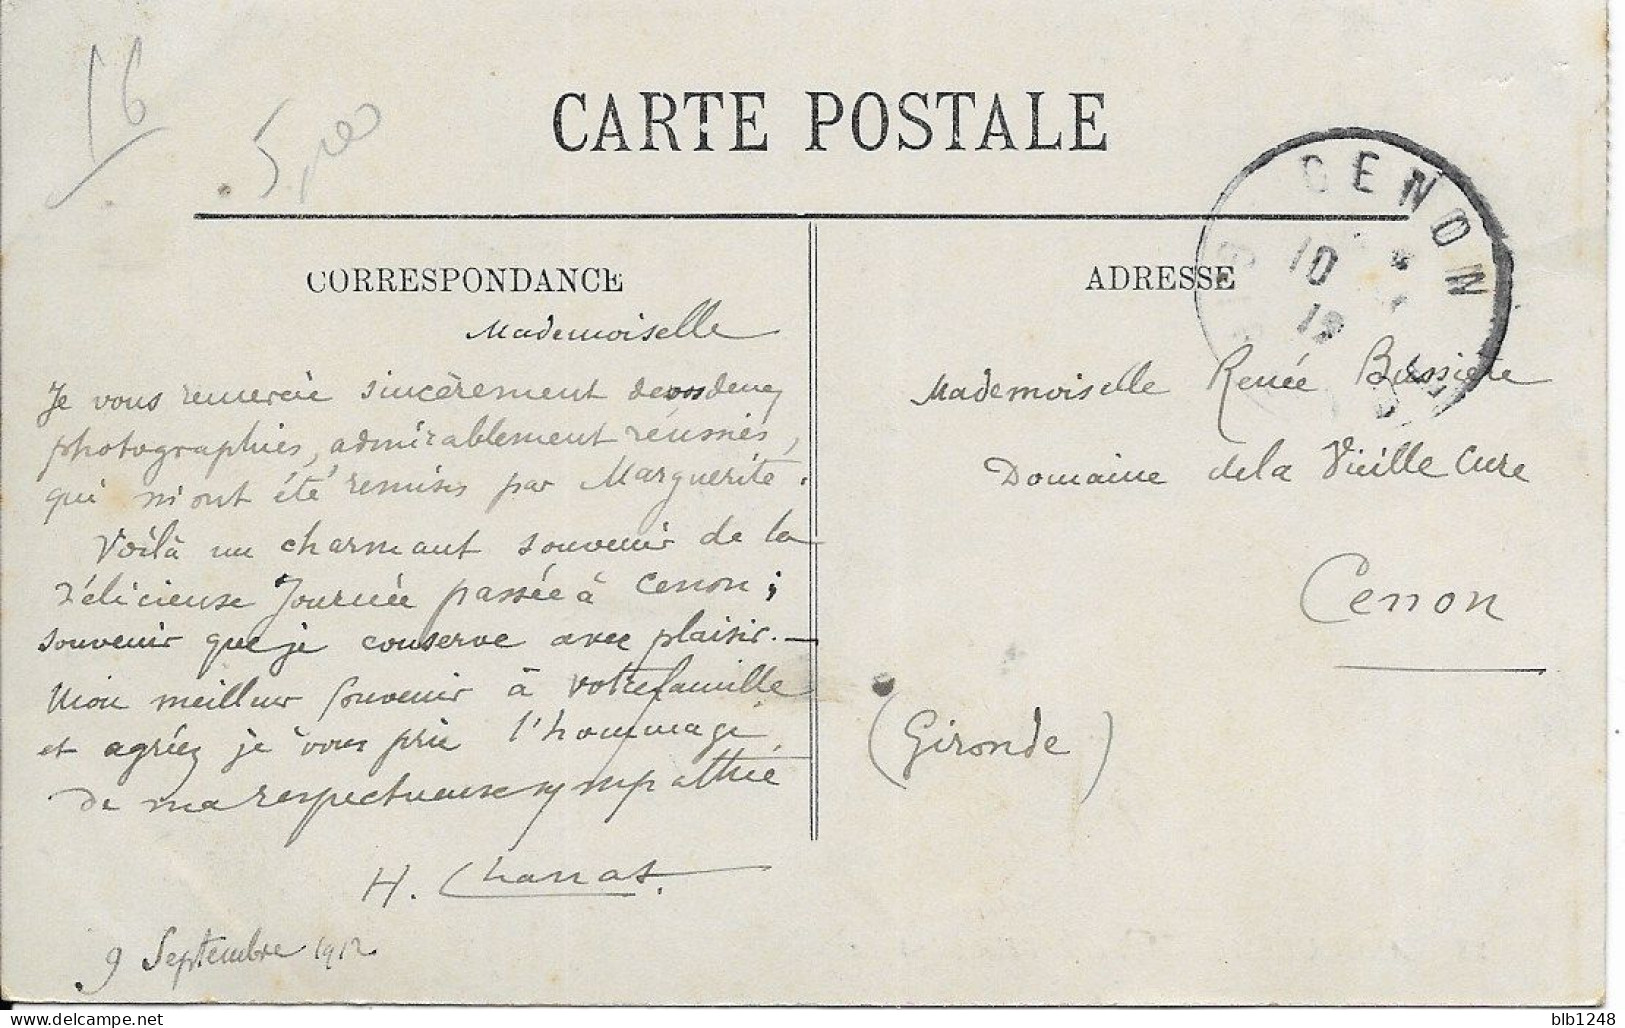 16
5
CARTE POSTALE
CORRESPONDANCE
Mademoiselle
Je vous remercie sincèrement de vos deux
photographies, admirablement réussies,
qui m'ont été remises par Marguerite.
Voilà un charmant souvenir de la
délicieuse Journée passée à Cenon ;
souvenir que je conserve avec plaisir. —
Mon meilleur souvenir à votre famille
et agréez je vous prie l'hommage
de ma respectueuse sympathie
H.
9 Septembre 1912
ADRESSE
CENON
10
Mademoiselle Renée Bussière
Domaine de la Vieille Cure
Cenon
(Gironde)
delcampe.net
blb1248